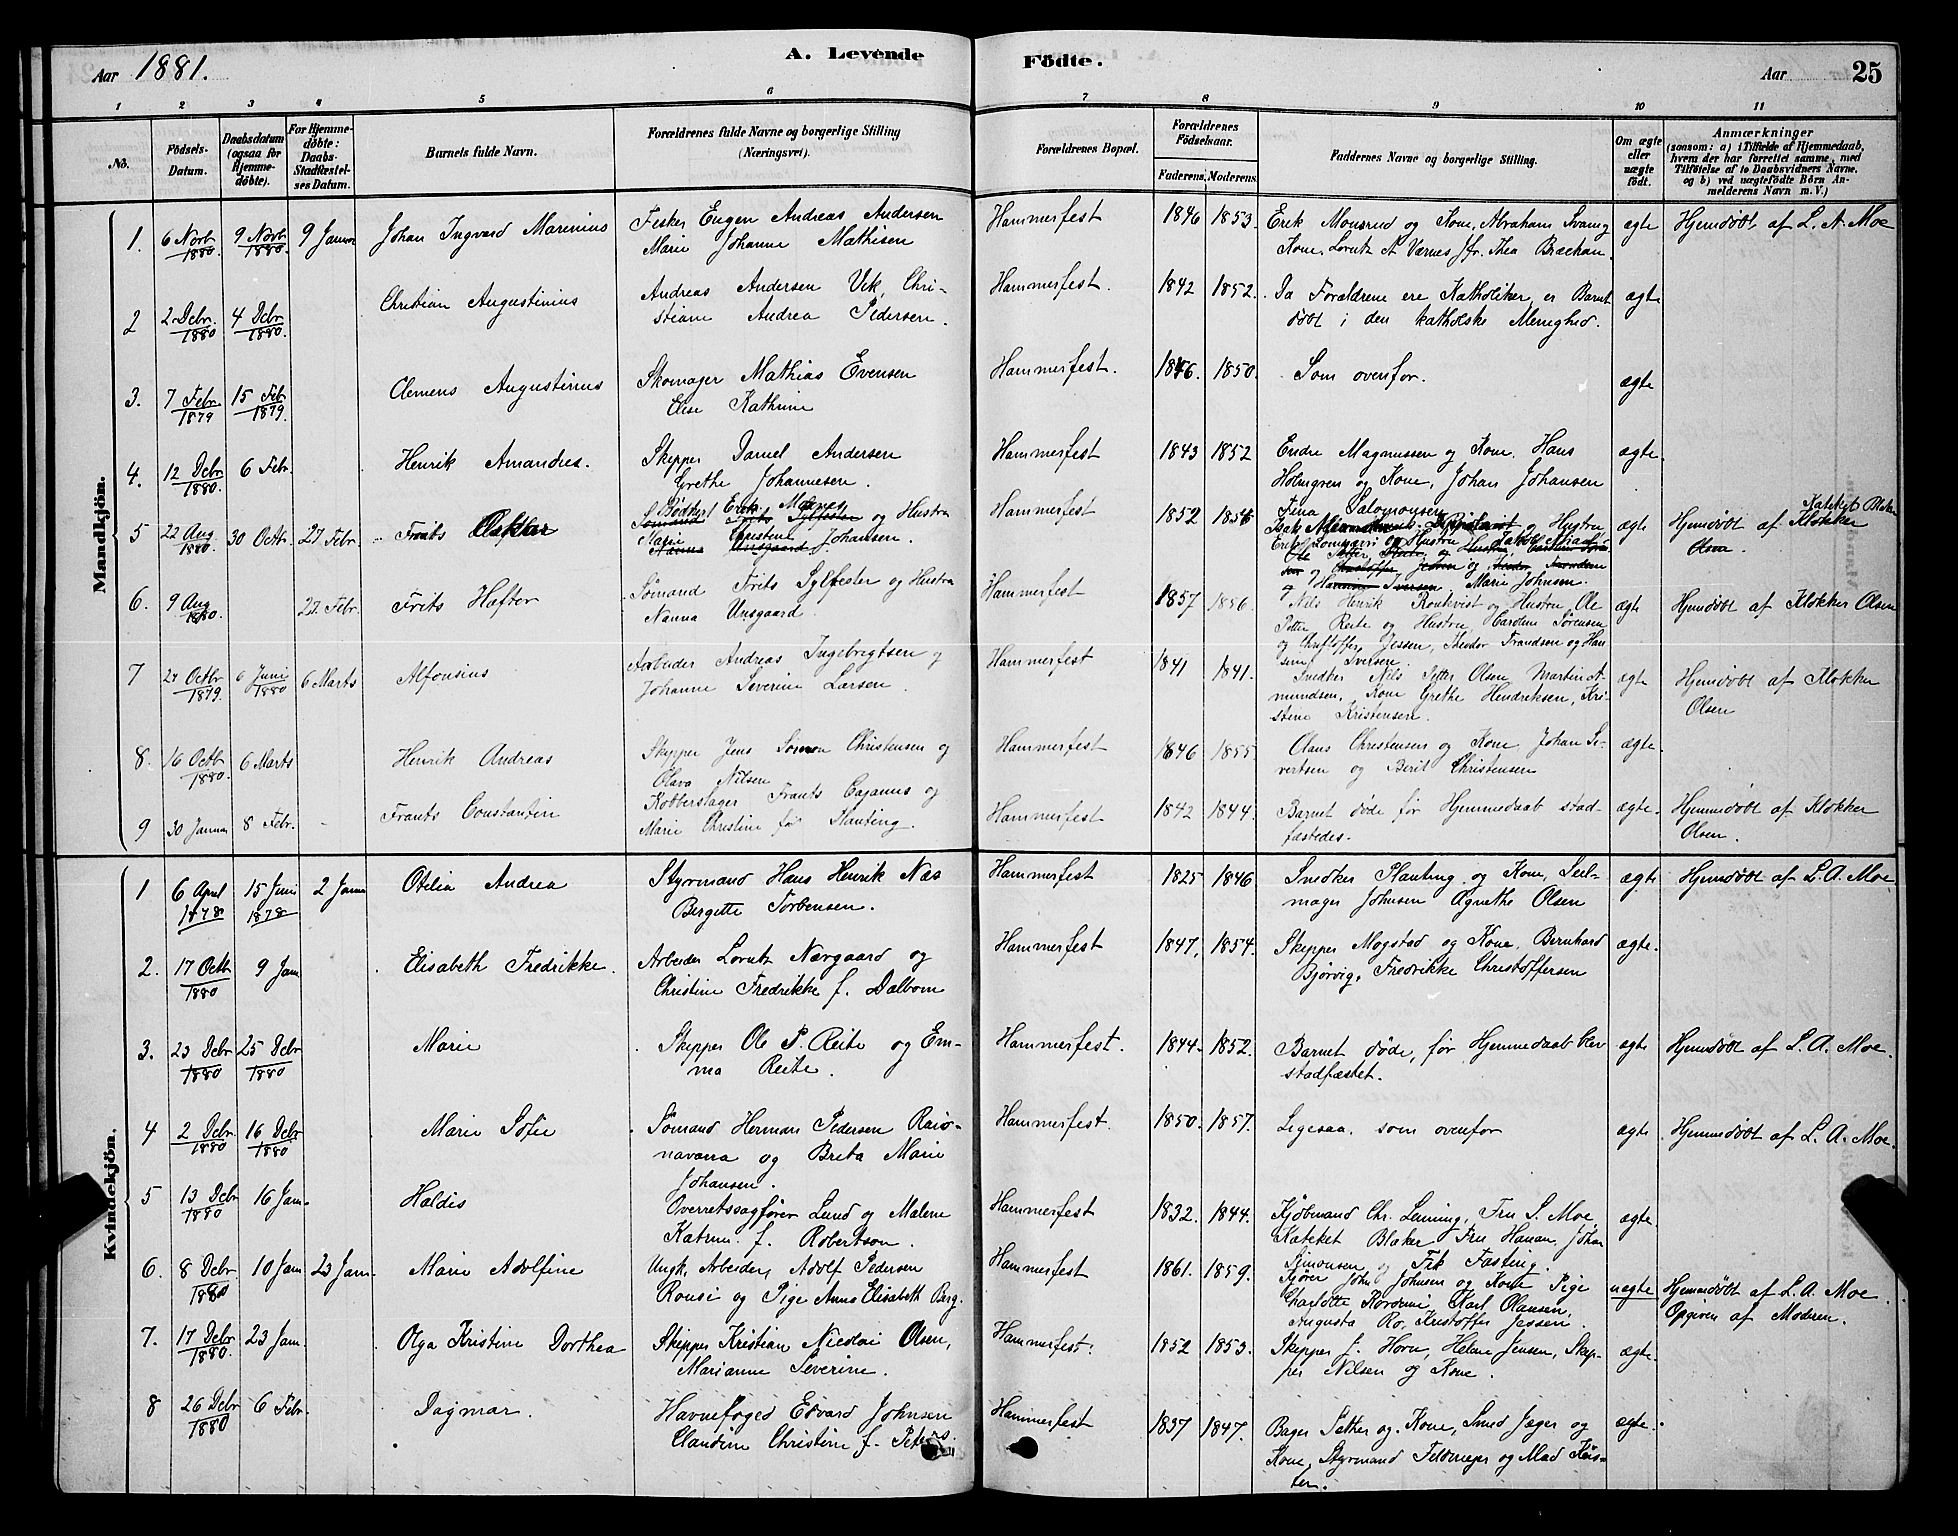 Aar 1881.
A. Levende
Födte.
Aar
25
1 2 3 4 5 6 7 8 9 10 11
No.
Födsels-Datum.
Daabsdatum (ogsaa for Hjemme-döbte).
For Hjemme-döbte: Daabs-Stadfæstel-ses Datum.
Barnets fulde Navn.
Forældrenes fulde Navne og borgerlige Stilling (Næringsvei).
Forældrenes Bopæl.
Forældrenes Födselsaar.
Faderens. Moderens.
Faddernes Navne og borgerlige Stilling.
Om ægte eller uægte födt.
Anmærkninger (saasom: a) i Tilfælde af Hjemmedaab, hvem der har forrettet samme, med Tilföielse af to Daabsvidners Navne. og b) ved uægtefödte Börn An-melderens Navn m. V.)
Mandkjön.
1. 6 Novb 1880 9 Novb 1880. 9 Januar Johan Ingvard Marenius
Fisker Eugen Andreas Andersen
Marie Johanne Mathisen
Hammerfest 1846 1853.
Erik Monsrud og Kone, Abraham Svang
Kone, Lorntz A Værnes Jfr. Thea Brækan.
ægte Hjemdøbt af L. A. Moe
2 2 Debr 1880 4 Debr 1880. Christian Augustinius
Andreas Andersen Vik, Chri-
stiane Andrea Pedersen.
Hammerfest. 1842 1852.
Da Forældrene ere Katholiker, er Barnet
døbt i den katholske Menighed.
ægte
3. 7 Febr 1879 15 Feb 1879. Clemens Augustinus
Skomager Mathias Evensen
Elise Kathrine
Hammerfest. 1846. 1850.
Som ovenfor.
ægte
4. 12 Debr 1880. 6 Febr. Henrik Amandus.
Skipper Daniel Andersen
Grethe Johannesen.
Hammerfest 1843 1852
Endre Magnussen og Kone, Hans
Holmgren og Kone, Johan Johansen
Fina Salomonsen
ægte.
5 22 Aug 1880. 30 Octbr. 27 Febr. Frants
Bødker Erik og Hustru
Marie Christine Johansen.
Hammerfest 1852
Hustru
Marie Johnsen.
ægte Hjemdøbt af Klokker
Olsen.
6. 9 Aug 1880. 27 Febr. Frits Hæfter
Sømand Frits Sylfester og Hustru
Nanna Unsgaard.
Hammerfest 1857 1856.
Nils Henrik Ronkvist og Hustru Ole
Petter Reite og Hustru Caroline Sørensen
og Christoffer Jessen, Theodor Frandsen og Han
sine Iversen.
ægte Hjemdøbt af Klokker Olsen
7 27 Octbr 1879. 6 Juni 1880 6 Marts Alfonsius
Arbeider Andreas Ingebrigtsen og
Johanne Severine Larsen.
Hammerfest 1841 1841.
Snedker Nils Petter Olsen Martin A-
mundsen, Kone Grethe Hendriksen, Kri-
stine Kristensen.
ægte Hjemdøbt af Klokker
Olsen
8. 16 Octb 1880. 6 Marts Henrik Andreas
Skipper Jens Simon Christensen og
Olava Nilsen
Hammerfest 1846 1855
Claus Christensen og Kone, Johan Si-
vertsen og Berit Christensen
ægte.
9 30 Januar 8 Febr. Frants Constantin
Kobberslager Frants Cajanus og
Marie Christine før Slauting.
Hammerfest 1842 1844.
Barnet døde før Hjemmedaab stad-
fæstedes.
ægte. Hjemmedøbt af Klokker
Olsen.
Kvindekjön.
1 6 April 1878 15 Juni 1878 2 Januar Otelia Andrea
Styrmand Hans Henrik Næs
Bergitte Torbensen.
Hammerfest 1825 1846
Snedker Slauting og Kone, Seil-
mager Johnsen Agnethe Olsen
ægte Hjemdøbt af L. A. Moe.
2. 17 Octb 1880 9 Jan Elisabeth Fredrikke.
Arbeider Lorntz Nærgaard og
Christine Fredrikke f. Dalbom
Hammerfest 1847. 1854.
Skipper Mogstad og Kone, Bernhard
Bjørvig, Fredrikke Christoffersen
ægte.
3. 23 Debr 1880 25 Debr 1880 Marie
Skipper Ole P. Reite og Em-
ma Reite.
Hammerfest. 1844. 1852.
Barnet døde, før Hjemmedaab blev
stadfæstet.
ægte Hjemdøbt af L. A. Moe.
4 2 Debr 1880 16 Debr 1880 Marie Sofie
Sømand Herman Pedersen Raio-
navarra og Brita Marie
Johansen.
Hammerfest. 1850. 1857.
Ligesaa som ovenfor
ægte Hjemmedøbt af L. A. Moe.
5 13 Debr 1880 16 Jan. Haldis
Overretssagfører Lund og Malene
Katrin. f. Robertson.
Hammerfest 1832. 1844.
Kjøbmand Chr. Lenning, Fru S. Moe,
Kateket Blaker Fru Hanan, Johan
Simonsen og Frk Fasting.
ægte.
6. 8 Debr 1880 10 Jan 23 Jan. Marie Adolfine
Ungk. Arbeider Adolf Pedersen
Rousi og Pige Anne Elisabeth Berg.
Hammerfest 1861. 1859.
Kjører John Johnsen og Kone Pige
Charlotte Kordemi, Karl Olausen,
Augusta Ro, Kristoffer Jessen.
uægte Hjemmedøbt af L. A. Moe
Opgiven af Moderen.
7. 17 Debr 1880. 23 Jan. Olga Kristine Dorthea
Skipper Kristian Nicolai Olsen,
Marianne Severine.
Hammerfest. 1852 1853.
Skipper J. Horn, Helene Jensen, Skip-
per Nilsen og Kone.
ægte.
8 26 Debr 1880 6 Febr. Dagmar.
Havnefoged Edvard Johnsen
Claudine Christine f. Peters.
Hammerfest 1837 1847.
Bager Sæther og Kone, Smed Jæger og
Kone, Styrmand Feldmejer og Mad Kös-
ter.
ægte.